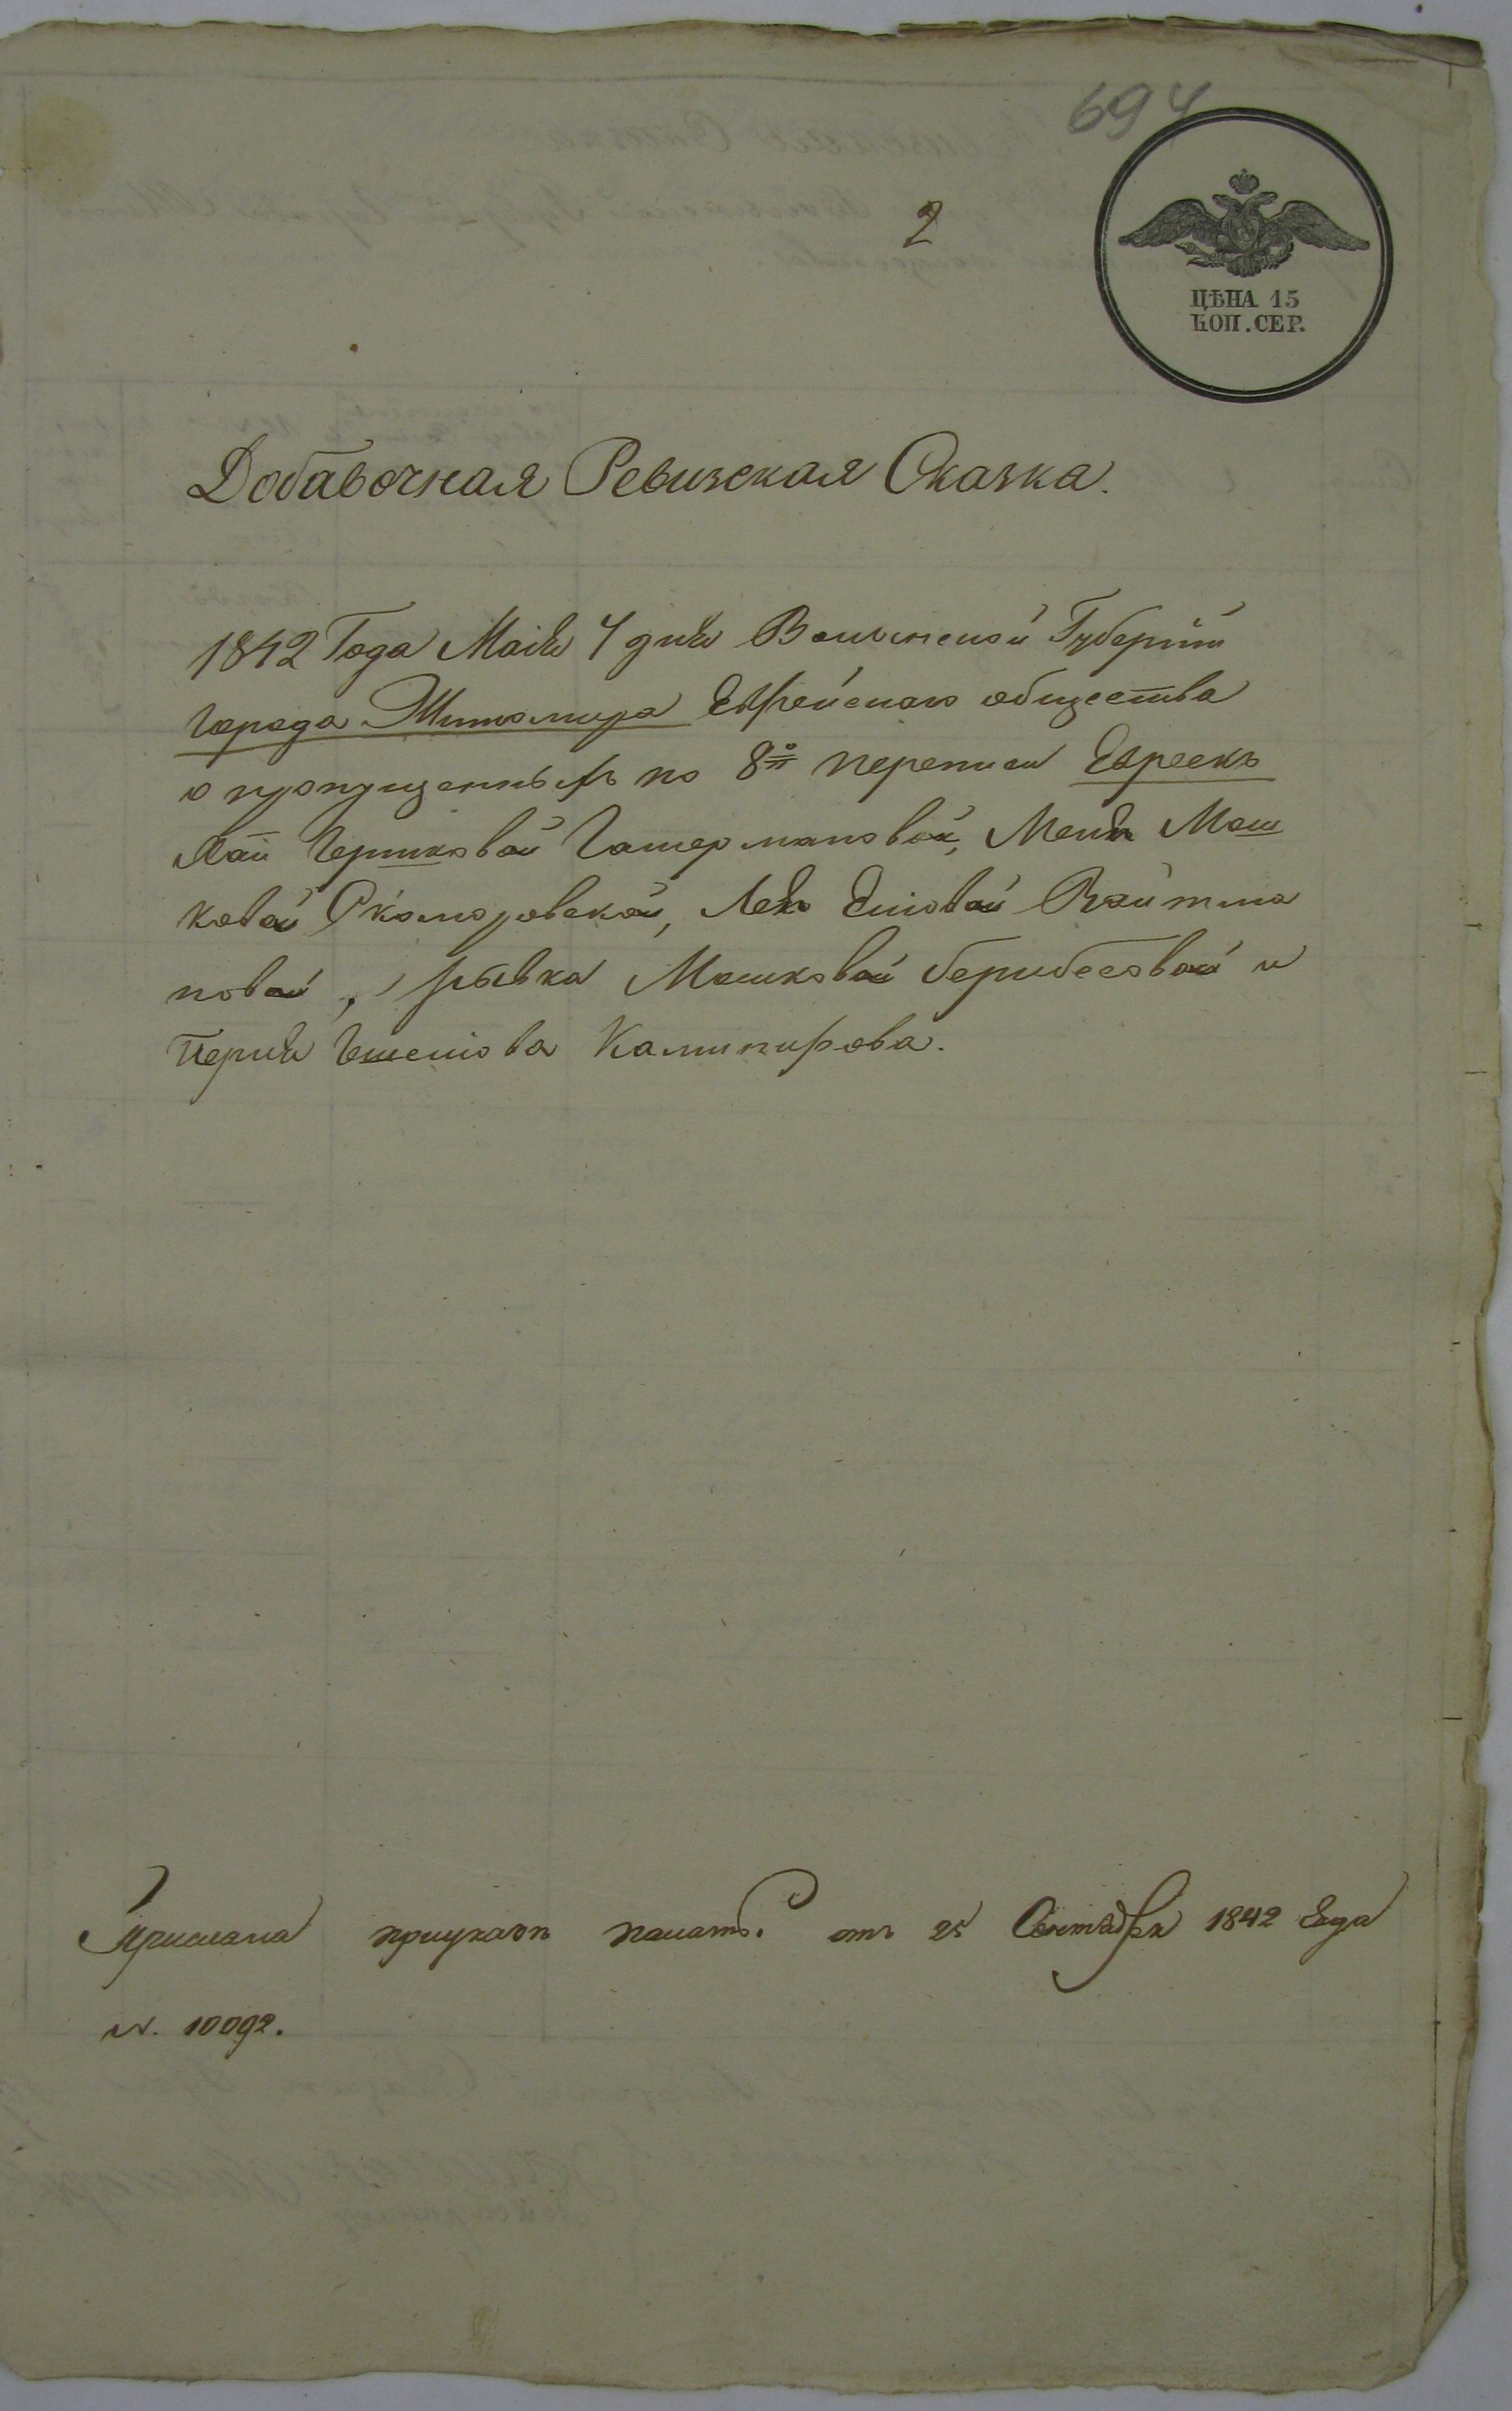 694
2
ЦѢНА 15
КОП. СЕР.
Добавочная Ревизская Сказка.
1842 Года Маія 4 дня Волынской Губерніи
города Житомира Еврейскаго общества
о пропущенныхъ по 8й переписи Евреекъ
Хаи Гершковой Гатермановой, Мош
ковой Скоморовской, Вайтма
новой, рывка Мошковой и
Перля
Прислана приуказѣ палаты отъ 25 Сентября 1842 Года
N. 10092.